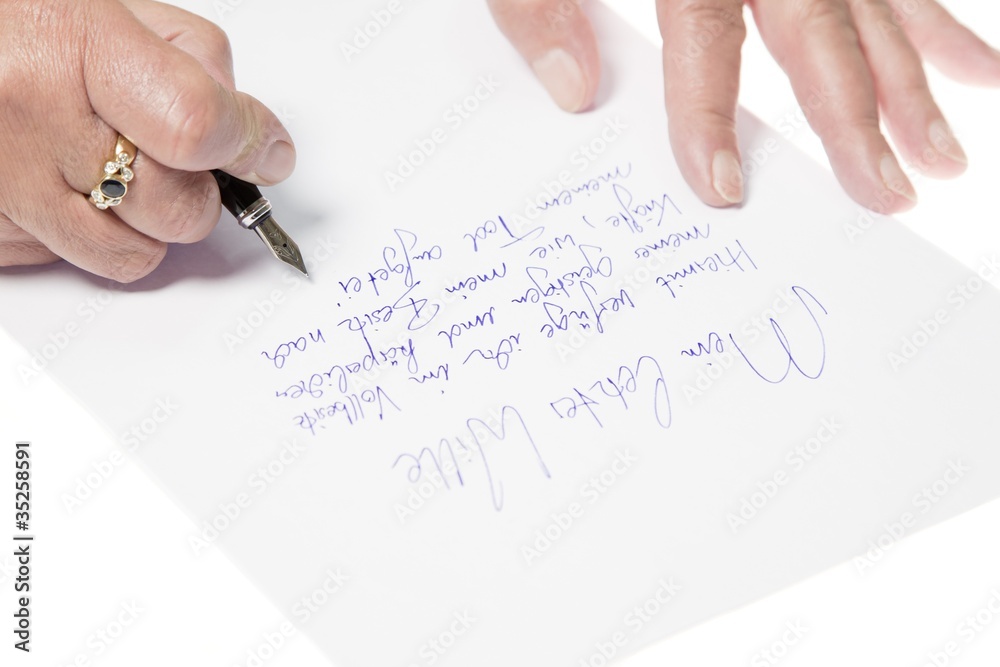 Mein letzter Wille
Hiermit verfüge ich im Vollbesitz
meiner geistigen und körperlichen
Kräfte, wie mein Besitz nach
meinem Tod aufgetei
Adobe Stock | #35258591
Adobe Stock